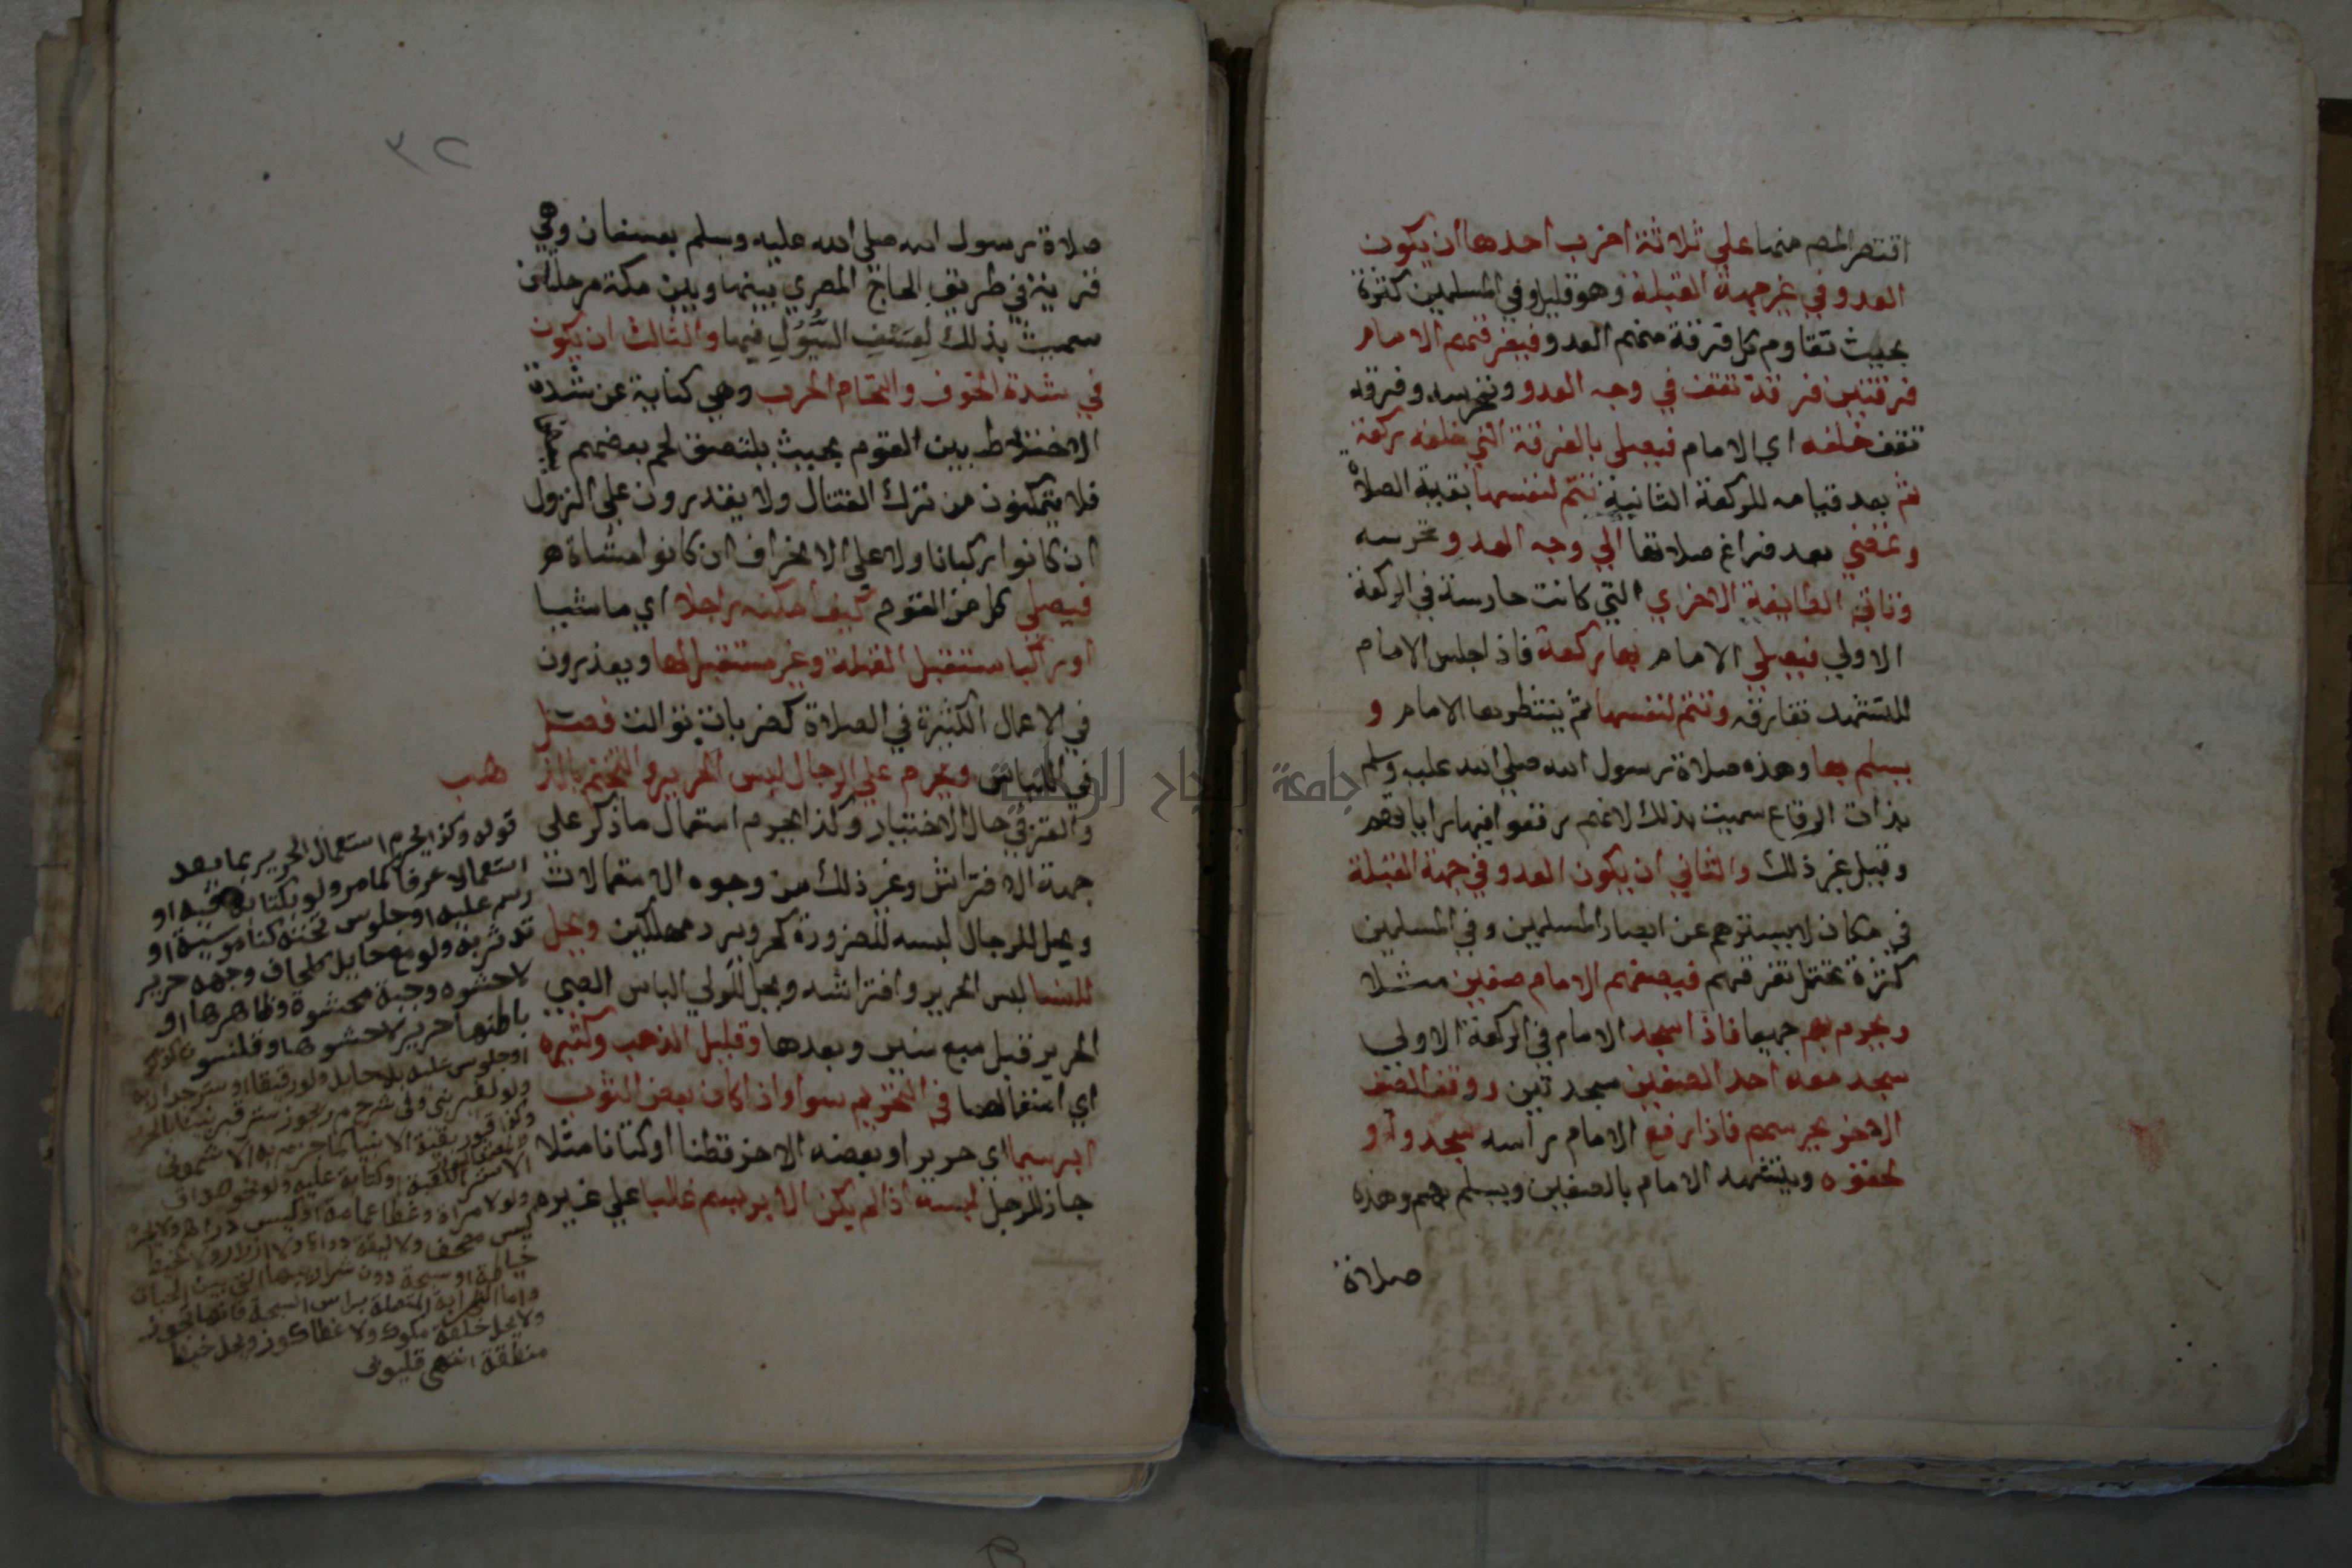 اقتصر المص منها علي ثلاثة اضرب احدها ان يكون
العدو في غير جهة القبلة وهو قليل وفي المسلمين كثرة
بحيث تقاوم كل فرقة منهم العدو فيفرقهم الامام
فرقتين فرقة تقف في وجه العدو وتحرسه وفرقة
تقف خلفه اي الامام فيصلي بالفرقة التي خلفه ركعة
ثم بعد قيامه للركعة الثانية تتم لنفسها بقية الصلاة
وتمضي بعد فراغ صلاتها الي وجه العدو وتحرسه
وتاتي الطايفة الاخري التي كانت حارسة في الركعة
الاولي فيصلي الامام بها ركعة فاذا جلس الامام
للتشهد تفارقه وتتم لنفسها ثم ينتظرها الامام و
يسلم بها وهذه صلاة رسول الله صلي الله عليه وسلم
بذات الرقاع سميت بذلك لانهم رقعوا فيها راياتهم
وقيل غير ذلك والثاني ان يكون العدو في جهة القبلة
في مكان لا يسترهم عن ابصار المسلمين وفي المسلمين
كثرة تحتمل تفرقهم فيصفهم الامام صفين مثلا
ويحرم بهم جميعا فاذا سجد الامام في الركعة الاولي
سجد معه احد الصفين سجدتين ووقف الصف
الاخر يحرسهم فاذا رفع الامام راسه سجدوا و
لحقوه ويتشهد الامام بالصفين ويسلم بهم وهذه
صلاة
٣٢
صلاة رسول الله صلي الله عليه وسلم بعسفان وهي
قرية في طريق الحاج المصري بينها وبين مكة مرحلتان
سميت بذلك لعسف السيول فيها والثالث ان يكون
في شدة الخوف والتحام الحرب وهي كناية عن شدة
الاختلاط بين القوم بحيث يلتصق لحم بعضهم
فلا يتمكنون من ترك القتال ولا يقدرون علي النزول
ان كانوا ركبانا ولا علي الانحراف ان كانوا مشاة
فيصلي كل من القوم كيف امكنه راجلا اي ماشيا
او راكبا مستقبل القبلة وغير مستقبل لها ويعذرون
في الاعمال الكثيرة في الصلاة كضربات توالت فصل
في اللباس ويحرم علي الرجال لبس الحرير والتختم بالذ
هب
والقز في حال الاختيار وكذا يحرم استعمال ماذكر علي
جهة الافتراش وغير ذلك من وجوه الاستعمالات
ويحل للرجال لبسه للضرورة كحر وبرد مهلكين ويحل
للنسا لبس الحرير وافتراشه ويحل للولي الباس الصبي
الحرير قبل سبع سنين وبعدها وقليل الذهب وكثيره
اي استعمالهما في التحريم سوا واذا كان بعض الثوب
ابرسيما اي حرير او بعضه الاخر قطنا او كتانا مثلا
جاز للرجل لبسه اذا لم يكن الابريسم غالبا علي غيره
قوله وكذا يحرم استعمال الحرير بما يعد
استعمالا عرفا كما مر ولو بكتابة فيه او
رسم عليه او جلوس تحته كناموسية او
تدثر به ولو مع حايل كلحاف وجهه حرير
لا حشوه وجبة محشوة وظاهرها او
باطنها حرير لا حشوها وقلنسوة
او جلوس عليه بلا حايل ولو رقيقا او ستر جدار به
ولو لقبر نبي وفي شرح مر يجوز ستر قبر نبينا بالحرير
وكذا قبور بقية الانبيا كما جزم به الاشموني
الاستر الكعبة او كتابة عليه ولو نحو صداق
ولو لامراة وغطا عمامة او كيس دراهم ولا يحرم
كيس مصحف ولا ليقة دواة ولا ازرار ولا خيط
خياطة او سبحة دون شراريبها التي بين الحبات
واما الشرابة المتصلة براس السبحة فانها تجوز
ولا يحل غطا كوز ويحل خيط
منطقة انتهي قليوبي
جامعة النجاح الوطنية